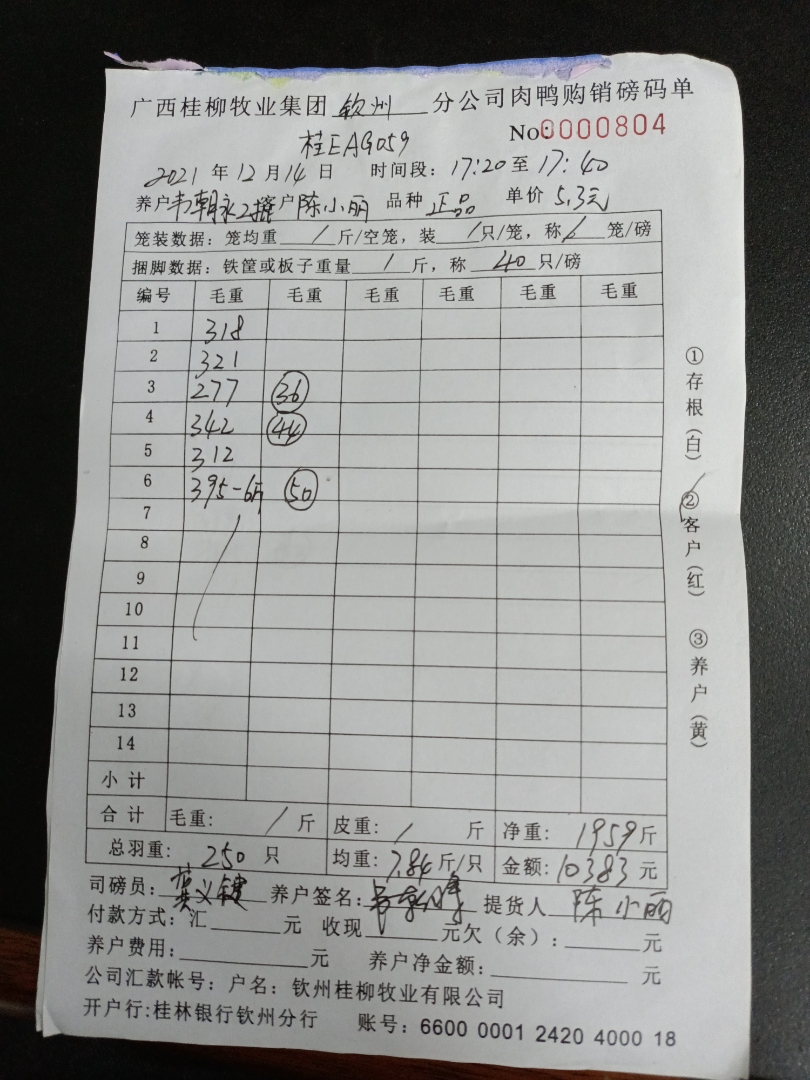 广西桂柳牧业集团 钦州 分公司肉鸭购销磅码单
桂EAG059 No:0000804
2021 年 12 月 14 日 时间段: 17:20 至 17:40
养户 韦朝永2 客户 陈小丽 品种 正品 单价 5.3元
笼装数据: 笼均重 / 斤/空笼, 装 / 只/笼, 称 / 笼/磅
捆脚数据: 铁筐或板子重量 / 斤, 称 40 只/磅
编号 毛重 毛重 毛重 毛重 毛重 毛重
1 318
2 321
3 277 36
4 342 44
5 312
6 395-6斤 50
7
8
9
10
11
12
13
14
小计
合计 毛重: / 斤 皮重: / 斤 净重: 1959 斤
总羽重: 250 只 均重: 7.84 斤/只 金额: 10383 元
司磅员: 养户签名: 提货人 陈小丽
付款方式: 汇 元 收现 元欠(余): 元
养户费用: 元 养户净金额: 元
公司汇款帐号: 户名: 钦州桂柳牧业有限公司
开户行:桂林银行钦州分行 账号: 6600 0001 2420 4000 18
①存根(白) ②客户(红) ③养户(黄)